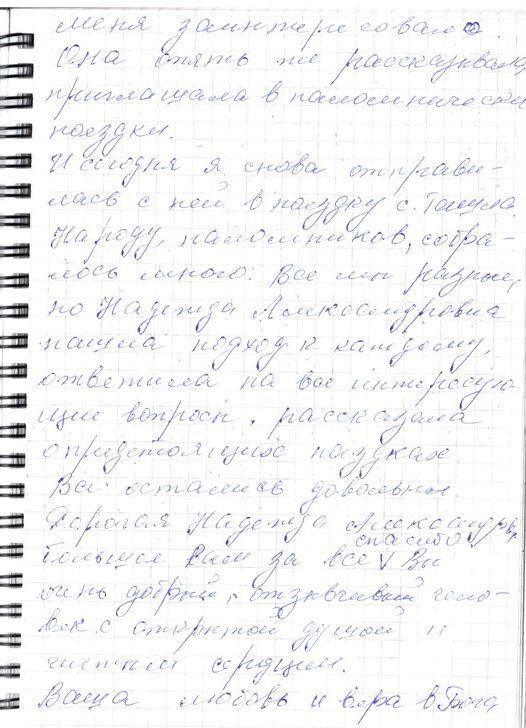 меня заинтересовало.
Она опять же рассказывала,
приглашала в паломнические
поездки.
И сегодня я снова отправи-
лась с ней в поездку с.
Народу, паломников, собра-
лось много. Все мы разные,
но Надежда Александровна
нашла подход к каждому,
ответила на все интересую
щие вопросы, рассказала
о предстоящих поездках
Все остались довольны.
Дорогая Надежда Александровна,
спасибо
большое Вам за все V Вы
очень добрый, отзывчивый чело-
век с открытой душой и
чистым сердцем.
Ваша любовь и вера в Бога